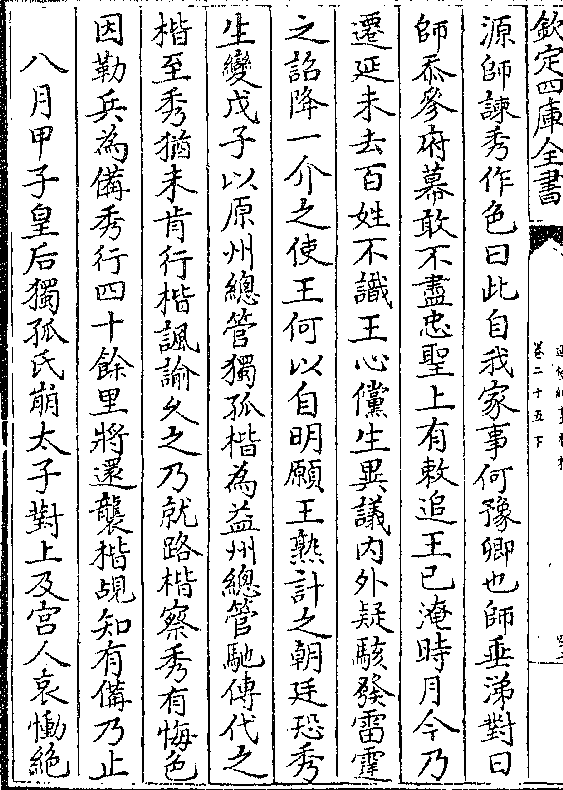 欽定四庫全書
卷二十五下
源師諫秀作色曰此自我家事何豫卿也師垂涕對曰
師忝參府幕敢不盡忠聖上有敕追王已淹時月今乃
遷延未去百姓不識王心儻生異議内外疑駭發雷霆
之詔降一介之使王何以自明願王熟計之朝廷恐秀
生變戊子以原州總管獨孤楷為益州總管馳傳代之
楷至秀猶未肯行楷諷諭久之乃就路楷察秀有悔色
因勒兵為備秀行四十餘里將還襲楷覘知有備乃止
八月甲子皇后獨孤氏崩太子對上及宫人哀慟絶